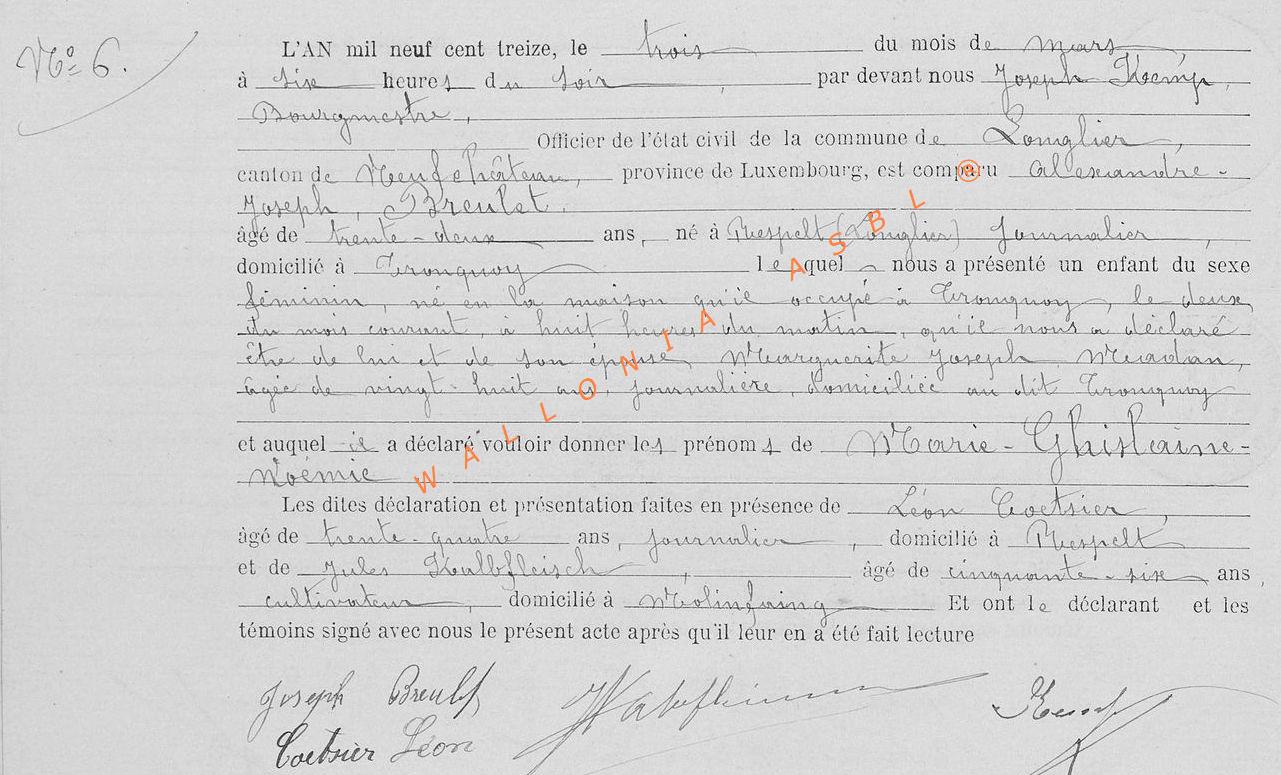 N° 6.
L'AN mil neuf cent treize, le trois du mois de mars,
à six heures du soir, par devant nous Joseph Kemp,
Bourgmestre,
Officier de l'état civil de la commune de Longlier,
canton de Neufchâteau, province de Luxembourg, est comparu Alexandre-
Joseph, Breulet.
âgé de trente-deux ans, né à Respelt (Longlier) journalier,
domicilié à Tronquoy lequel nous a présenté un enfant du sexe
féminin, né en la maison qu'il occupe à Tronquoy, le deux
du mois courant, à huit heures du matin, qu'il nous a déclaré
être de lui et de son épouse, Marguerite Joseph
âgée de vingt-huit ans, journalière, domiciliée au dit Tronquoy
et auquel il a déclaré vouloir donner les prénoms de Marie-Ghislaine-
Noëmie
Les dites déclaration et présentation faites en présence de Léon Coetsier,
âgé de trente-quatre ans, journalier, domicilié à Respelt
et de Jules Kalbfleisch, âgé de cinquante-six ans,
cultivateur, domicilié à Molinfaing Et ont le déclarant et les
témoins signé avec nous le présent acte après qu'il leur en a été fait lecture
Joseph Breulet
Coetsier Léon
Kemp
WALLONIA ASBL ®